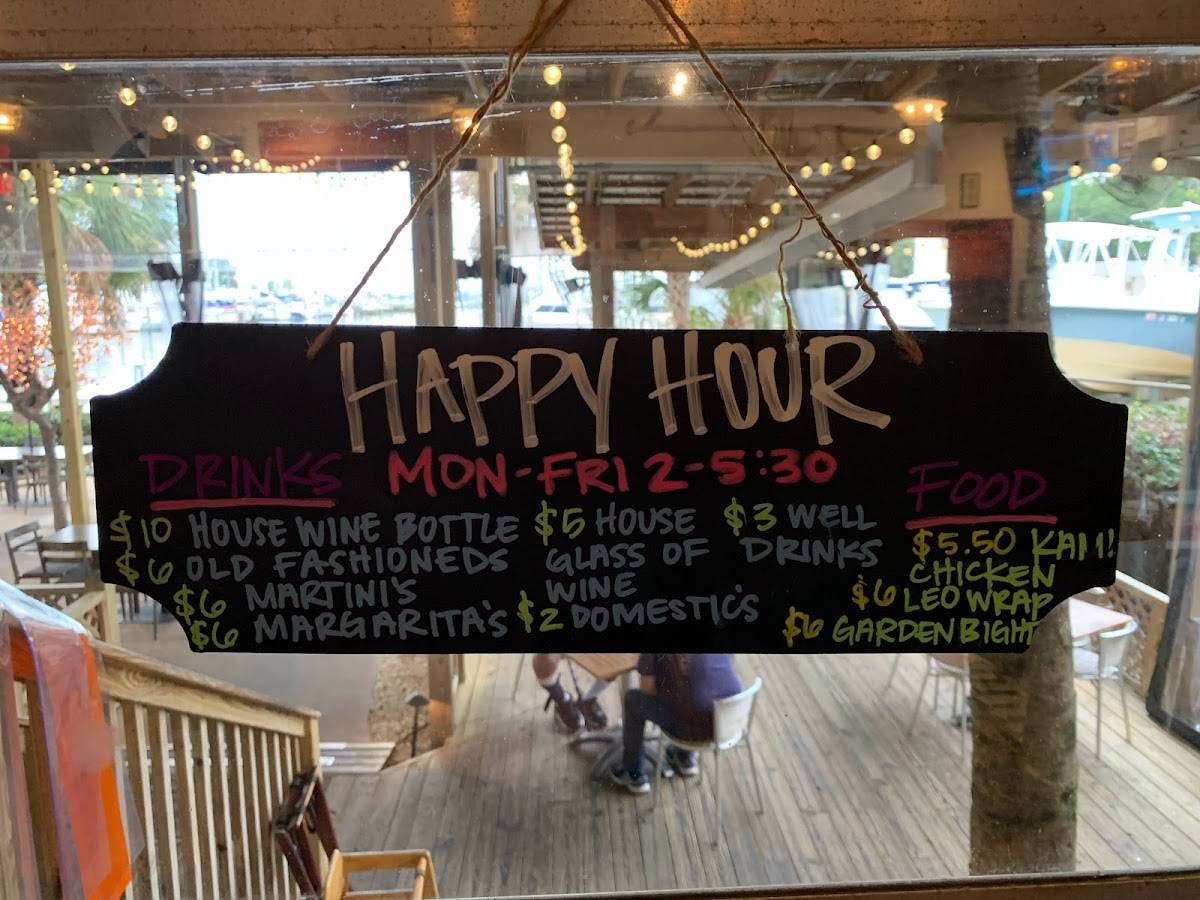 HAPPY HOUR
MON-FRI 2-5:30
DRINKS
$10 HOUSE WINE BOTTLE
$6 OLD FASHIONEDS
$6 MARTINI'S
$6 MARGARITA'S
$5 HOUSE
GLASS OF
WINE
$2 DOMESTIC'S
$3 WELL
DRINKS
FOOD
$5.50 KAI 1!
CHICKEN
$6 LEO WRAP
$6 GARDEN BIGHT